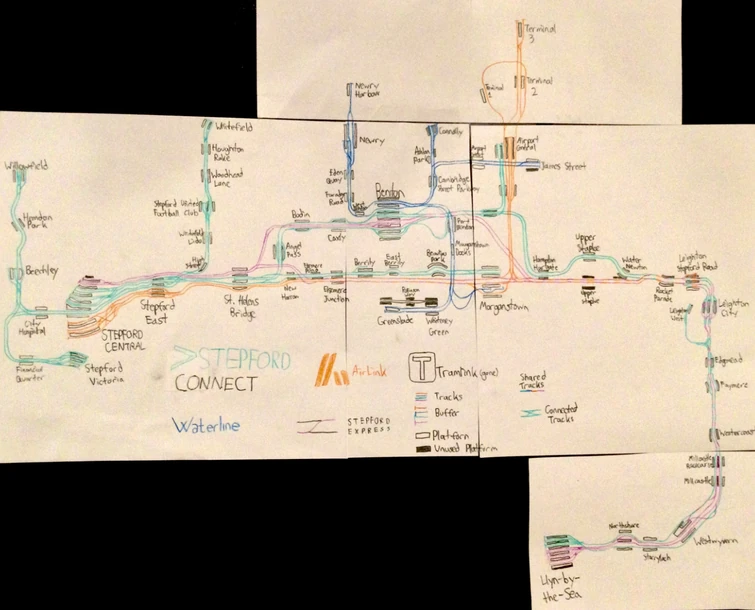 Terminal
3
Terminal
1
Terminal
2
Newry
Harbour
Whitefield
Connolly
Newry
Houghton
Rake
Airport
Central
Willowfield
James Street
Woodhead
Lane
Eden
Quay
Cambridge
Street Parkway
Benton
Stepford United
Football Club
Hampton
Park
Bodin
Port
Benton
Whitefield
Lido
Coxly
Morganstown
Docks
Upper
Staploe
High
Street
Angel
Pass
Hampton
Hargate
Water
Newton
Leighton
Stepford Road
Beechley
Berrily
East
Berrily
Beaulieu
Park
St. Helens
Bridge
New
Harrow
Elsemere
Junction
Morganstown
Rocket
Parade
Leighton
City
Stepford
East
Leighton
West
City
Hospital
Greenslade
Whitney
Green
STEPFORD
CENTRAL
Financial
Quarter
Stepford
Victoria
STEPFORD
CONNECT
AirLink
T
TramLink (gone)
Shared
Tracks
Edgemead
Faymere
Tracks
Buffer
Connected
Tracks
Waterline
STEPFORD
EXPRESS
Platform
Unused Platform
Westercoast
Millcastle
Racecourse
Millcastle
Northshore
Westwyvern
Starryloch
Llyn-by-
the-Sea